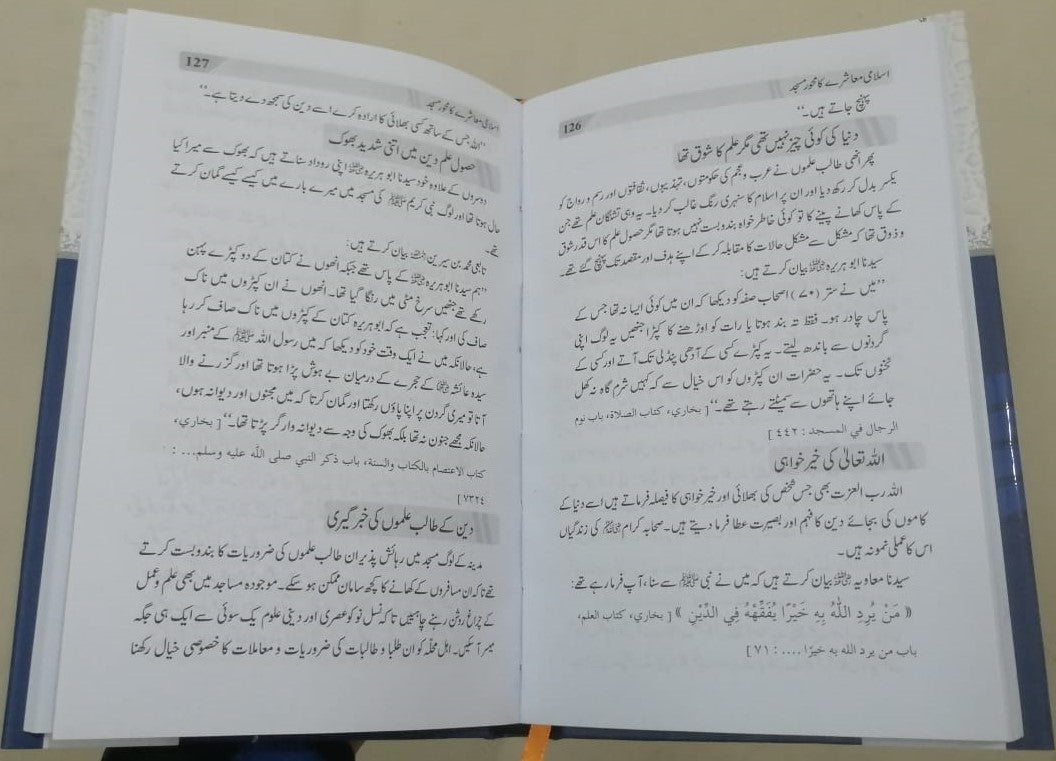 اسلامی معاشرے کا محور مسجد
126
پہنچ جاتے ہیں۔‘‘
دنیا کی کوئی چیز نہیں تھی مگر علم کا شوق تھا
پھر انھی طالب علموں نے عرب و عجم کی حکومتوں، تہذیبوں، ثقافتوں اور رسم و رواج کو
یکسر بدل کر رکھ دیا اور ان پر اسلام کا سنہری رنگ غالب کر دیا۔ یہ وہی تشنگان علم تھے جن
کے پاس کھانے پینے کا تو کوئی خاطر خواہ بندوبست نہیں ہوتا تھا مگر حصول علم کا اس قدر شوق
و ذوق تھا کہ مشکل سے مشکل حالات کا مقابلہ کر کے اپنے ہدف اور مقصد تک پہنچ گئے تھے۔
سیدنا ابو ہریرہ رضی اللہ عنہ بیان کرتے ہیں:
’’میں نے ستر (۷۰) اصحاب صفہ کو دیکھا کہ ان میں کوئی ایسا نہ تھا جس کے
پاس چادر ہو۔ فقط تہ بند ہوتا یا رات کو اوڑھنے کا کپڑا جنھیں یہ لوگ اپنی
گردنوں سے باندھ لیتے۔ یہ کپڑے کسی کے آدھی پنڈلی تک آتے اور کسی کے
ٹخنوں تک۔ یہ حضرات ان کپڑوں کو اس خیال سے کہ کہیں شرم گاہ نہ کھل
جائے اپنے ہاتھوں سے سمیٹتے رہتے تھے۔‘‘ [ بخاري، كتاب الصلاة، باب نوم
الرجال في المسجد : ٤٤٢ ]
اللہ تعالیٰ کی خیر خواہی
اللہ رب العزت بھی جس شخص کی بھلائی اور خیر خواہی کا فیصلہ فرماتے ہیں اسے دنیا کے
کاموں کی بجائے دین کا فہم اور بصیرت عطا فرما دیتے ہیں۔ صحابہ کرام رضی اللہ عنہم کی زندگیاں
اس کا عملی نمونہ ہیں۔
سیدنا معاویہ رضی اللہ عنہ بیان کرتے ہیں کہ میں نے نبی ﷺ سے سنا، آپ فرما رہے تھے:
« مَنْ يُرِدِ اللّٰهُ بِهِ خَيْرًا يُفَقِّهْهُ فِي الدِّيْنِ » [ بخاري، كتاب العلم،
باب من يرد الله به خيرًا .... : ٧١ ]
اسلامی معاشرے کا محور مسجد
127
’’اللہ جس کے ساتھ کسی بھلائی کا ارادہ کرے اسے دین کی سمجھ دے دیتا ہے۔‘‘
حصول علم دین میں اتنی شدید بھوک
دوسروں کے علاوہ خود سیدنا ابو ہریرہ رضی اللہ عنہ اپنی روداد سناتے ہیں کہ بھوک سے میرا کیا
حال ہوتا تھا اور لوگ نبی کریم ﷺ کی مسجد میں میرے بارے میں کیسے کیسے گمان کرتے
تھے۔
تابعی محمد بن سیرین رحمہ اللہ بیان کرتے ہیں:
’’ہم سیدنا ابو ہریرہ رضی اللہ عنہ کے پاس تھے جبکہ انھوں نے کتان کے دو کپڑے پہن
رکھے تھے جنھیں سرخ مٹی میں رنگا گیا تھا۔ انھوں نے ان کپڑوں میں ناک
صاف کی اور کہا: تعجب ہے کہ ابو ہریرہ کتان کے کپڑوں میں ناک صاف کر رہا
ہے، حالانکہ میں نے ایک وقت خود کو دیکھا کہ میں رسول اللہ ﷺ کے منبر اور
سیدہ عائشہ رضی اللہ عنہا کے حجرے کے درمیان بے ہوش پڑا ہوتا تھا اور گزرنے والا
آتا تو میری گردن پر اپنا پاؤں رکھتا اور گمان کرتا کہ میں مجنوں اور دیوانہ ہوں،
حالانکہ مجھے جنون نہ تھا بلکہ بھوک کی وجہ سے دیوانہ وار گر پڑتا تھا۔‘‘ [ بخاري،
كتاب الاعتصام بالكتاب والسنة، باب ذكر النبي صلى الله عليه وسلم... :
٧٣٢٤ ]
دین کے طالب علموں کی خبر گیری
مدینہ کے لوگ مسجد میں رہائش پذیر ان طالب علموں کی ضروریات کا بندوبست کرتے
تھے تا کہ ان مسافروں کے کھانے کا کچھ سامان ممکن ہو سکے۔ موجودہ مساجد میں بھی علم و عمل
کے چراغ روشن رہنے چاہییں تاکہ نسل نو کو عصری اور دینی علوم یک سوئی سے ایک ہی جگہ
میسر آ سکیں۔ اہل محلّہ کو ان طلبا و طالبات کی ضروریات و معاملات کا خصوصی خیال رکھنا